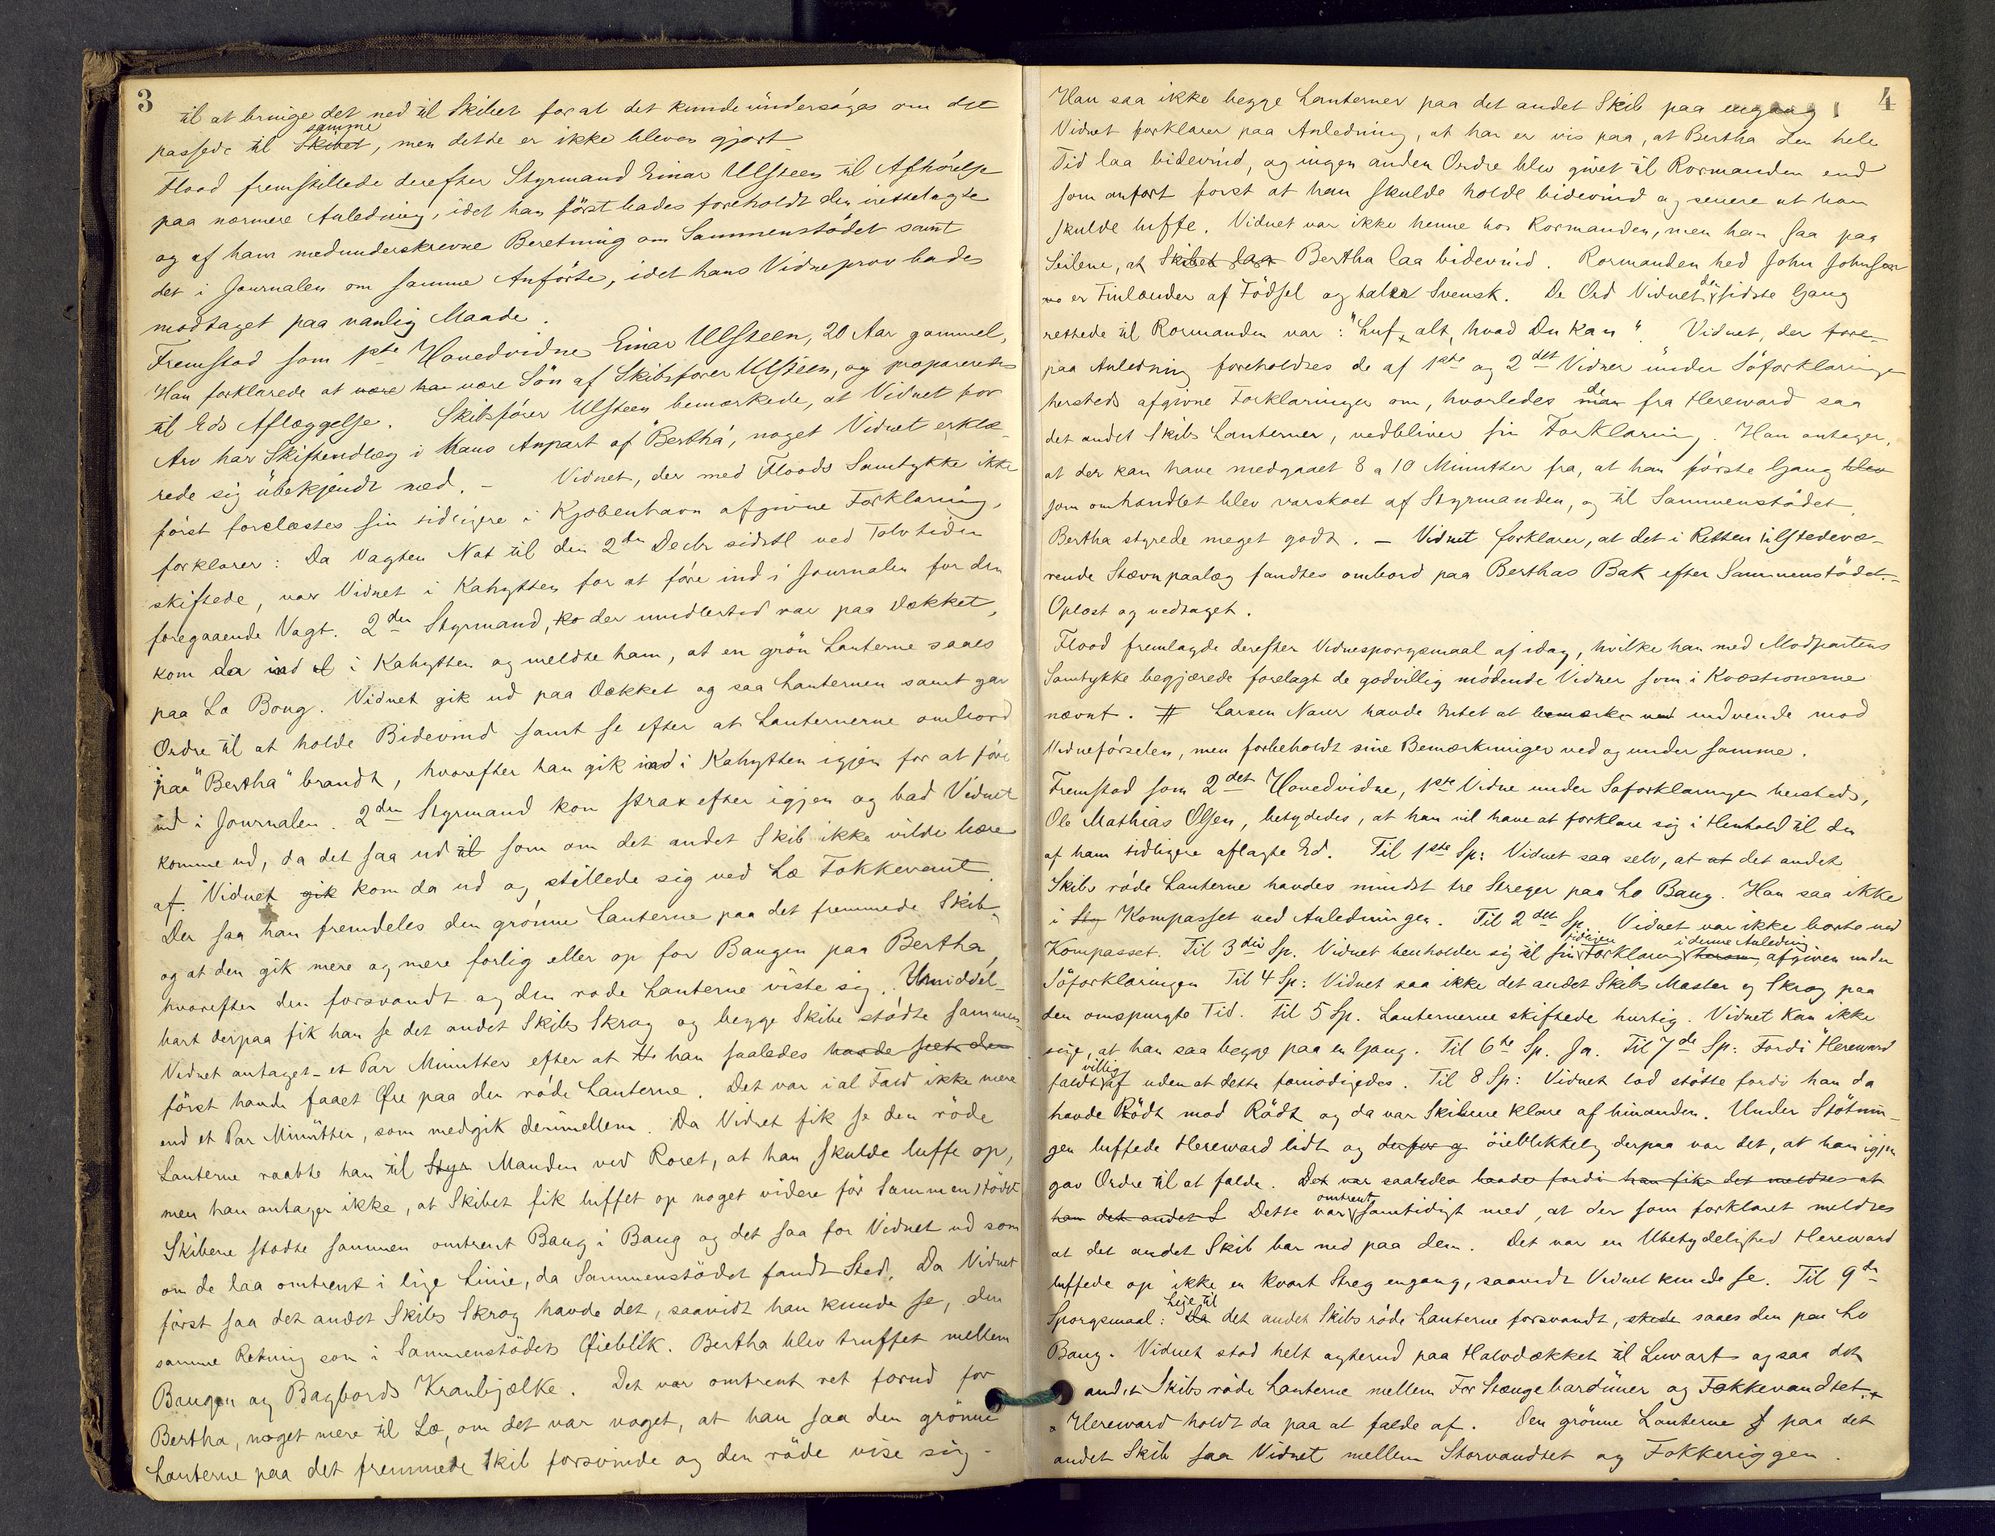 3
til at bringe det ned til Skibet for at det kunde undersøges om det
passede til Skibet samme, men dette er ikke bleven gjort.
Flood fremstillede derefter Styrmand Einar Ulsteen til Afhörelse
paa nærmere Anledning, idet han först bades foreholdt den irettelagte
og af ham medunderskrevne Beretning om Sammenstödet samt
det i Journalen om samme Anförte, idet hans Vidneprov bades
modtaget paa vanlig Maade.
Fremstod som 1ste Hovedvidne Einar Ulsteen, 20 Aar gammel,
Han forklarede at være han være Sön af Skibsförer Ulsteen, og præpareredes
til Eds Aflæggelse. Skibsförer Ulsteen bemærkede, at Vidnet for
Arv har Skifteudlæg i Hans Anpart af "Bertha", noget Vidnet erklæ-
rede sig übekjendt med. - Vidnet, der med Floods Samtykke ikke
först forelæstes sin tidligere i Kjøbenhavn afgivne Forklaring,
forklarer: Da Vagten Nat til den 2den Decbr sidstl ved Tolvtiden
skiftede, var Vidnet i Kahytten for at före ind i Journalen for den
foregaaende Vagt. 2den Styrmand, ko der imidlertid var paa Dækket,
kom da ind i Kahytten og meldte ham, at en grön Lanterne saaes
paa Læ Boug. Vidnet gik ud paa Dækket og saa Lanternen samt gav
Ordre til at holde Bidevind samt se efter at Lanternerne ombord
paa "Bertha" brandt, hvorefter han gik ind i Kahytten igjen for at före
ind i Journalen. 2den Styrmand kom strax efter igjen og bad Vidnet
komme ud, da det saa ud til som om det andet Skib ikke vilde bære
af. Vidnet gik kom da ud og stillede sig ved Læ Fokkevant.
Der saa han fremdeles den grönne Lanterne paa det fremmede Skib
og at den gik mere og mere forlig eller op for Baugen paa Bertha,
hvorefter den forsvandt og den röde Lanterne viste sig. Umiddel-
bart derpaa fik han se det andet Skibs Skrog og begge Skibe stödte sammen.
Vidnet antager et Par Minutter efter at han saaledes havde seet den
först havde faaet Øie paa den röde Lanterne. Det var i al Fald ikke mere
end et Par Minütter, som medgik derimellem. Da Vidnet fik se den röde
Lanterne raabte han til Styr Manden ved Roret, at han skulde luffe op,
men han antager ikke, at Skibet fik luffet op noget videre för Sammenstödet
Skibene stödte sammen omtrent Baug i Baug og det saa for Vidnet ud som
om de laa omtrent i lige Linie, da Sammenstödet fandt Sted. Da Vidnet
först saa det andet Skibs Skrog havde det, saavidt han kunde se, den
samme Retning som i Sammenstödets Øieblik. Bertha blev truffet mellem
Baugen og Bagbords Kranbjælke. Det var omtrent ret forud for
Bertha, noget mere til Læ, om det var noget, at han saa den grönne
Lanterne paa det fremmede Skib forsvinde og den röde vise sig.
4
Han saa ikke begge Lanterner paa det andet Skib paa engang.
Vidnet forklarer paa Anledning, at han er vis paa, at Bertha den hele
Tid laa bidevind, og ingen anden Ordre blev givet til Rormanden end
som anfört först at han skulde holde bidevind og senere at han
skulde luffe. Vidnet var ikke henne hos Rormanden, men han saa paa
Seilene, at Skibet laa Bertha laa bidevind. Rormanden hed John Johnson
er Finlænder af Födsel og taler Svensk. De Ord Vidnet den sidste Gang
rettede til Rormanden var: "Luf, alt, hvad Du kan". Vidnet, der fore-
paa Anledning foreholdtes de af 1ste og 2det Vidner under Söforklaringen
hersteds afgivne Forklaringer om, hvorledes man de fra Hereward saa
det andet Skibs Lanterner, vedbliver sin Forklaring. Han antager,
at der kan have medgaaet 8 a 10 Minutter fra, at han förste Gang blev
som omhandlet blev varskoet af Styrmanden, og til Sammenstödet.
Bertha styrede meget godt. - Vidnet forklarer, at det i Retten tilstedevæ-
rende Stævnpaalæg fandtes ombord paa Berthas Bak efter Sammenstödet.-
Oplæst og vedtaget.
Flood fremlagde derefter Vidnesporgsmaal af idag, hvilke han med Modpartens
Samtykke begjærede forelagt de godvillig mödende Vidner som i Kvæstionerne
nævnt. # Larsen Naur havde Intet at bemærke ved indvende mod
Vidneförselen, men forbeholdt sine Bemærkninger ved og under samme.
Fremstod som 2det Hovedvidne, 1ste Vidne under Søforklaringen hersteds,
Ole Mathias Olsen, betydedes, at han vil have at forklare sig i Henhold til den
af ham tidligere aflagte Ed. Til 1ste Sp: Vidnet saa selv, at det andet
Skibs röde Lanterne havdes mindst tre Streger paa Lo Baug. Han saa ikke
i Sty Kompasset ved Anledningen. Til 2det Sp. Vidnet var ikke borte ved
Kompasset. Til 3die Sp. Vidnet henholder sig til sin tidligere Forklaring herom i denne Anledning, afgiven under
Söforklaringen Til 4 Sp: Vidnet saa ikke det andet Skibs Master og Skrog paa
den omspurgte Tid. Til 5 Sp. Lanternerne skiftede hurtig. Vidnet kan ikke
sige, at han saa begge paa en Gang. Til 6te Sp. Ja. Til 7de Sp: Fordi "Hereward
faldt villig af uden at dette fornödigedes. Til 8 Sp: Vidnet lod stötte fordi han da
havde Rödt mod Rödt og da var Skibene klare af hinanden. Under Stötnin-
gen luffede Hereward lidt og derfor g öieblikkelig derpaa var det, at han igjen
gav Ordre til at falde. Det var saaledes baade fordi han fik det meldtes at
han det andet S Dette var omtrent samtidigt med, at der som forklaret meldtes
at det andet Skib bar ned paa dem. Det var en Ubetydelighed Hereward
luffede op ikke en kvart Streg engang, saavidt Vidnet kunde se. Til 9de
Sporgsmaal: Da Lige til det andet Skibs röde Lanterne forsvandt, skede saaes den paa Lo
Baug. Vidnet stod helt agterud paa Halvdækket til Luvart og saa det
andet Skibs röde Lanterne mellem For Stængebardüner og Fokkevandtet.
Hereward holdt da paa at falde af. Den grönne Lanterne paa det
andet Skib saa Vidnet mellem Storvandtet og Fokkeriggen.